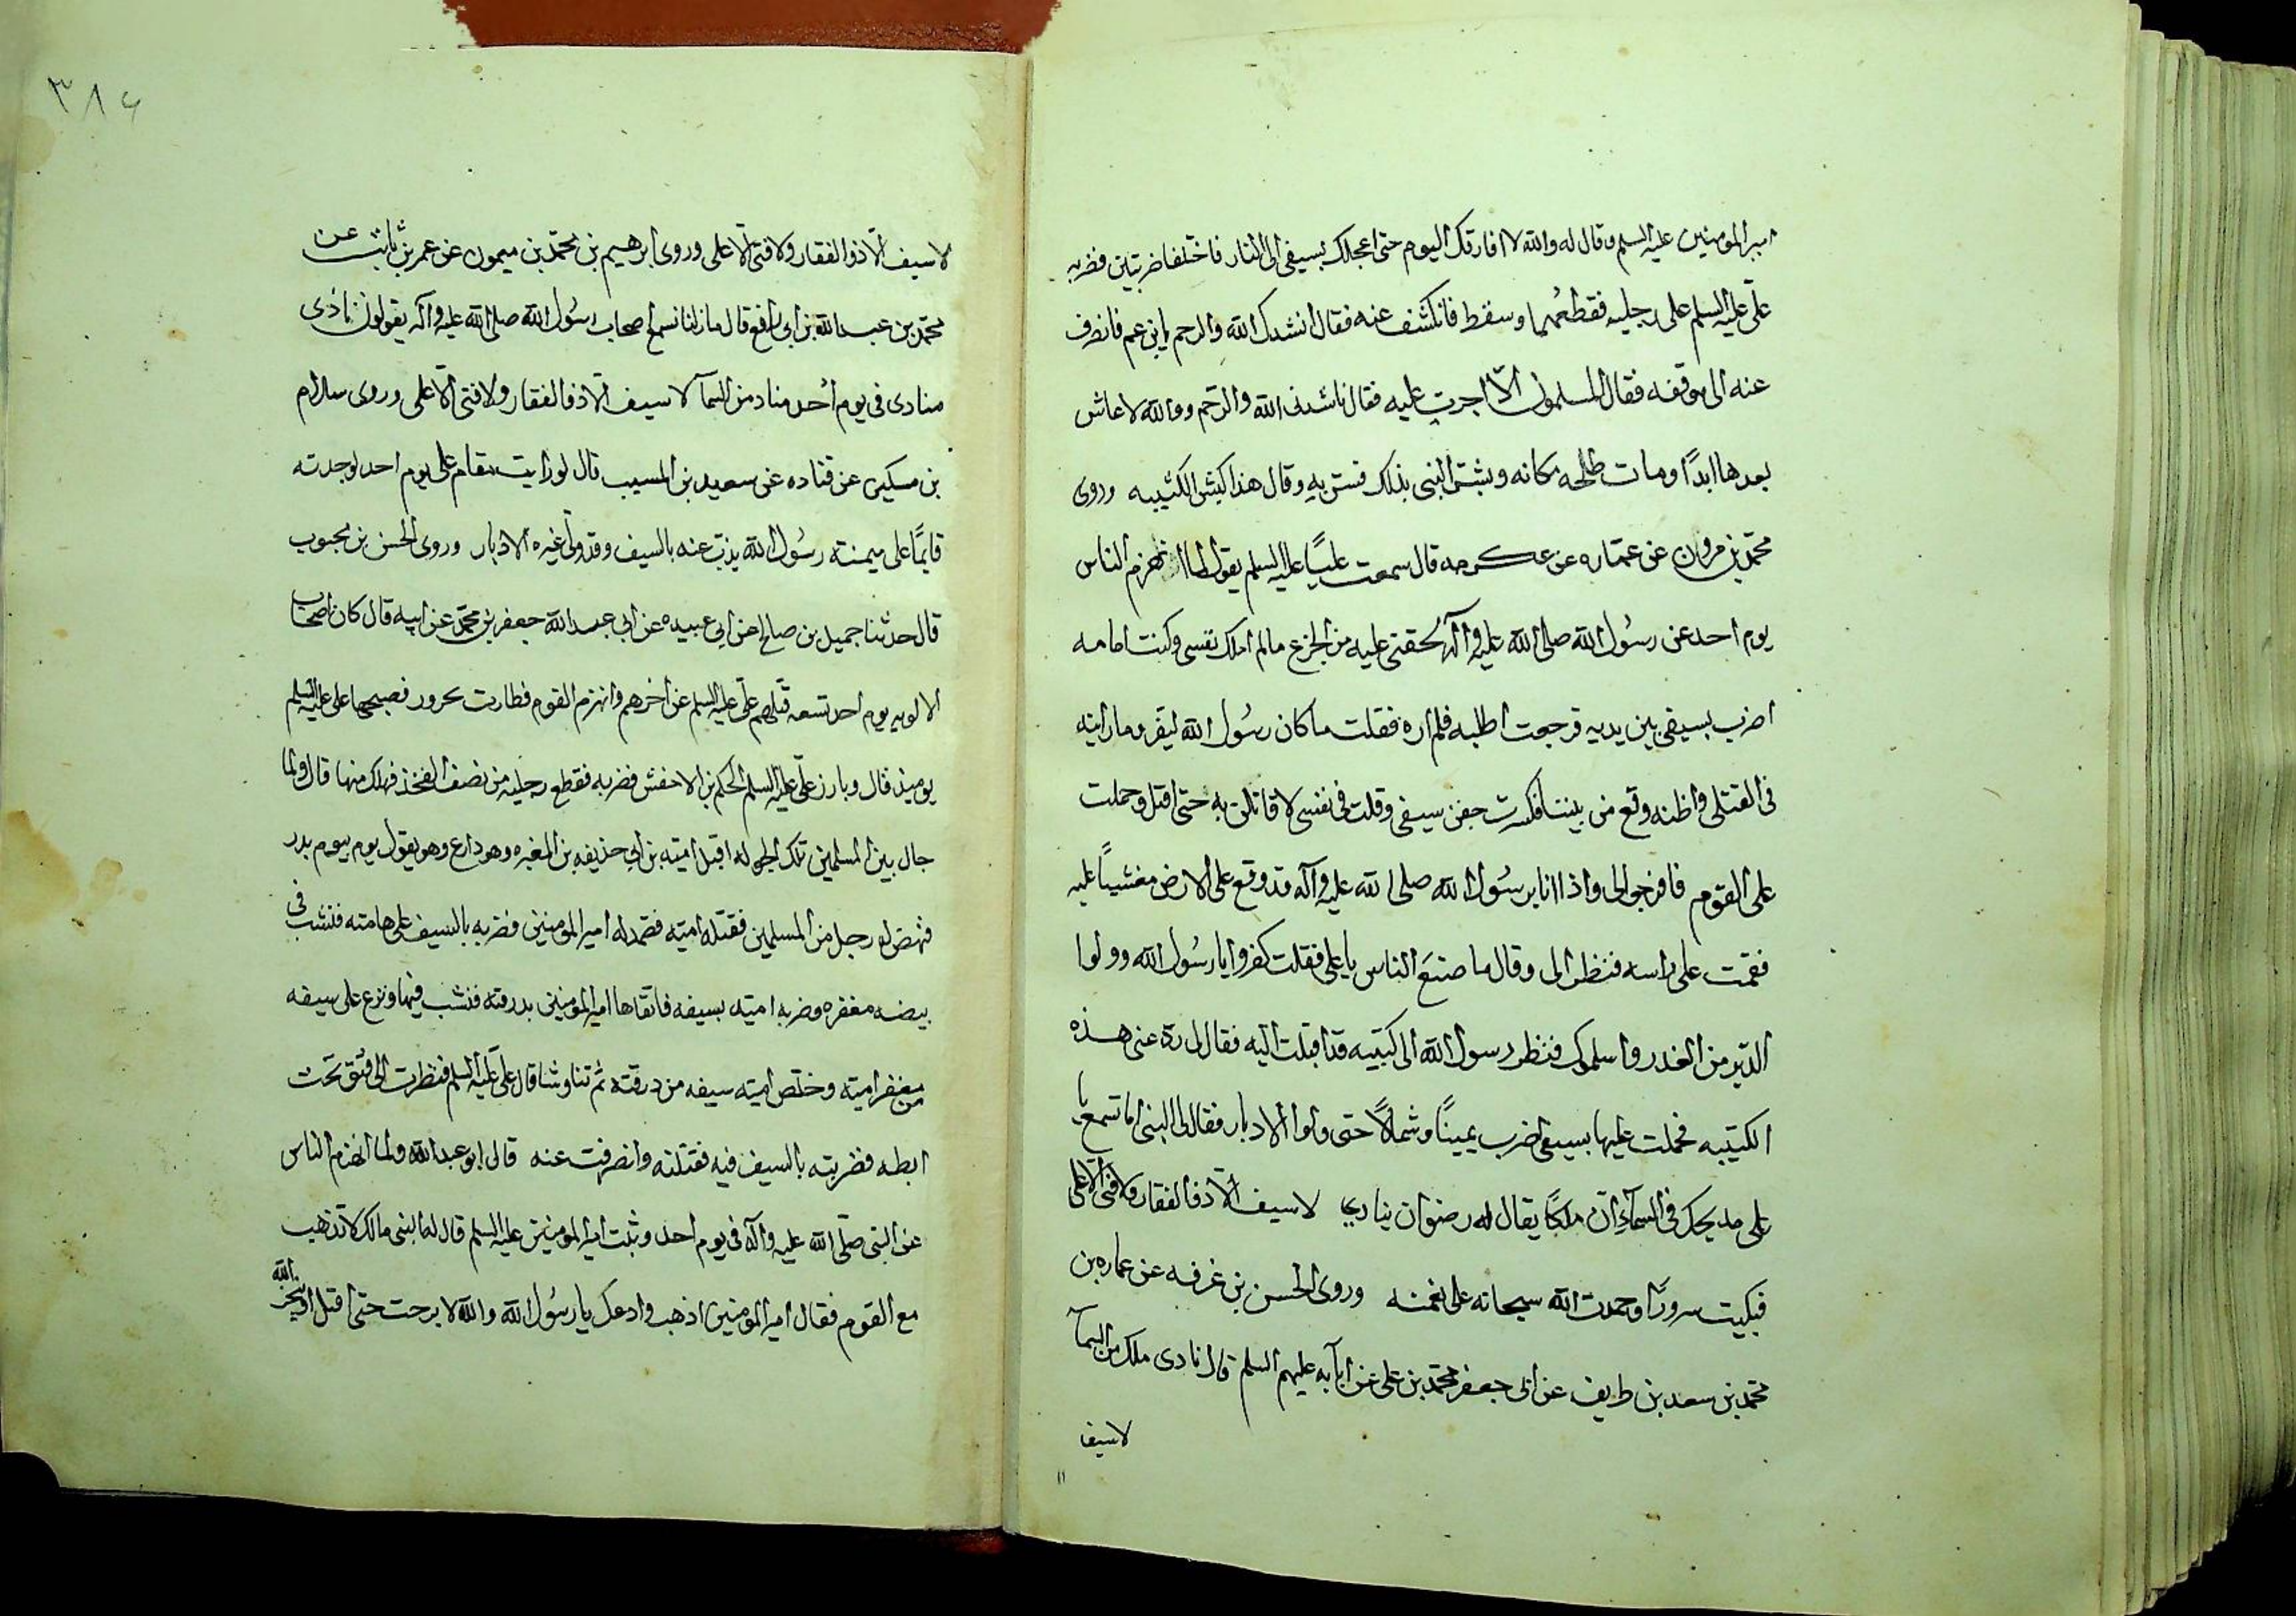 امير المومنين عليه السلم وقال له والله لا افارقك اليوم حتى اعجلك بسيفى الى النار فاختلفا ضربتين فضربه
علىّ عليه السلم على رجليه فقطعهما وسقط فانكشف عنه فقال انشدك الله والرحم يابن عم فانصرف
عنه الى موقفه فقال المسلمون الّا اجريت عليه فقال ناشدنى الله والرحم ووالله لا عاش
بعدها ابدًا ومات طلحه مكانه وبشّر النبى بذلك فسرّ به وقال هذا كبش الكتيبه وروى
محمّد بن مروان عن عمّاره عن عكرمه قال سمعت عليًّا عليه السلم يقول لما انهزم الناس
يوم احد عن رسُول الله صلى الله عليه وآله لحقنى عليه من الجزع مالم املك نفسى وكنت امامه
اضرب بسيفى بين يديه فرجعت اطلبه فلم اره فقلت ما كان رسُول الله ليفر وما رايته
فى القتلى واظنه رفع من بيننا فكسرت جفن سيفى وقلت فى نفسى لاقاتلن به حتى اقتل وحملت
على القوم فافرجوا لى واذا انا برسُول الله صلى الله عليه وآله قد وقع على الارض مغشيًا عليه
فقمت على راسه فنظر الى وقال ما صنعَ الناس يا على فقلت كفروا يا رسُول الله وولوا
الدّبر من الغدر واسلموك فنظر رسول الله الى كتيبه قد اقبلت اليه فقال لى ردّ عنى هذه
الكتيبه فحملت عليها بسيفى اضرب يمينًا وشمالًا حتى ولوا الادبار فقال لى النبى اما تسمع يا
على مديحك فى السمآء انّ ملكًا يقال له رضوان ينادى لا سيف الّا ذو الفقار ولا فتى الّا على
فبكيت سرورًا وحمدت الله سبحانه على نعمته وروى الحسن بن عرفه عن عماره بن
محمّد بن سعد بن طريف عن ابى جعفر محمّد بن على عن ابآيه عليهم السلم قال نادى ملك من السمآ
لا سيف
٣٨٤
لا سيف الّا ذو الفقار ولا فتى الّا على وروى ابرهيم بن محمّد بن ميمون عن عمر بن ثابت عن
محمّد بن عبد الله بن ابى رافع قال ما زلنا نسمع اصحاب رسُول الله صلى الله عليه وآله يقولون نادى
منادى فى يوم اُحد مناد من السمآ لا سيف الّا ذو الفقار ولا فتى الّا على وروى سلام
بن مسكين عن قتاده عن سعيد بن المسيب قال لو رايت مقام على يوم احد لوجدته
قايمًا على ميمنته رسُول الله يذبّ عنه بالسيف وقد ولّى غيره الادبار وروى الحسن بن محبوب
قال حدثنا جميل بن صالح عن ابى عبيده عن ابى عبد الله جعفر بن محمّد عن ابيه قال كان اصحاب
الالويه يوم احد تسعه قتلهم علىّ عليه السلم عن اخرهم وانهزم القوم فطارت محزور فصبحها على عليه السلم
يوميذ قال وبارز علىّ عليه السلم الحكم بن الاخفش فضربه فقطع رجليه من نصف الفخذ فهلك منها قال ولما
جال بين المسلمين تلك الجوله اقبل اميّه بن ابى حذيفه بن المغيره وهو دارع وهو يقول يوم بيوم بدر
فنهض له رجل من المسلمين فقتله اميّه فصمد له امير المومنين فضربه بالسيف على هامته فنشب فى
بيضه مغفره وضربه اميّه بسيفه فاتقاها امير المومنين بدرقته فنشب فيها ونزع على سيفه
من مغفر اميّه وخلّص اميّه سيفه من درقته ثم تناوشا قال علىّ عليه السلم فنظرت الى فتق تحت
ابطه فضربته بالسيف فيه فقتلته وانصرفت عنه قال ابو عبد الله ولما انهزم الناس
عن النبى صلّى الله عليه وآله فى يوم احد وثبت امير المومنين عليه السلم قال له النبى مالك لا تذهب
مع القوم فقال امير المومنين اذهب وادعك يا رسُول الله والله لا برحت حتى اقتل او ينجز الله